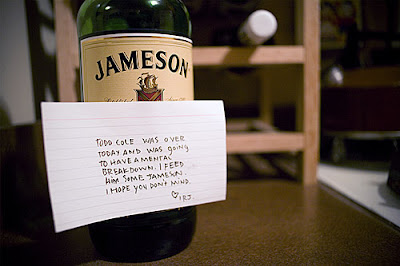 JAMESON
TODD COLE WAS OVER
TODAY AND WAS GOING
TO HAVE A MENTAL
BREAKDOWN. I FEED
HIM SOME JAMESON.
I HOPE YOU DON'T MIND.
♡, RJ.